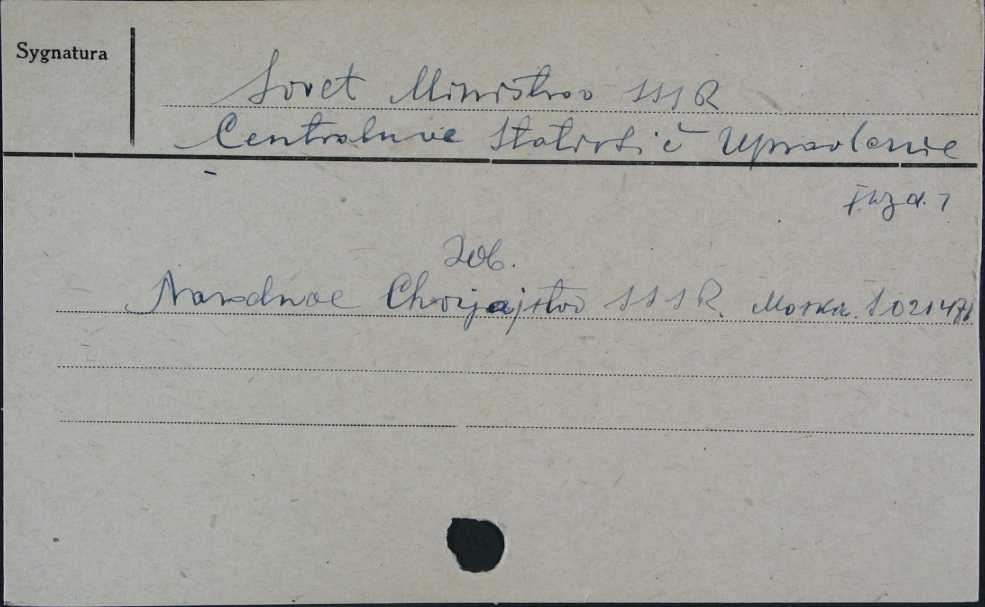 Sygnatura
Sovet Ministrov SSSR
Centralnoe Statisti č Upravlenie
Zob.
Narodnoe Chozjajstvo SSSR. Moskva. S 021471